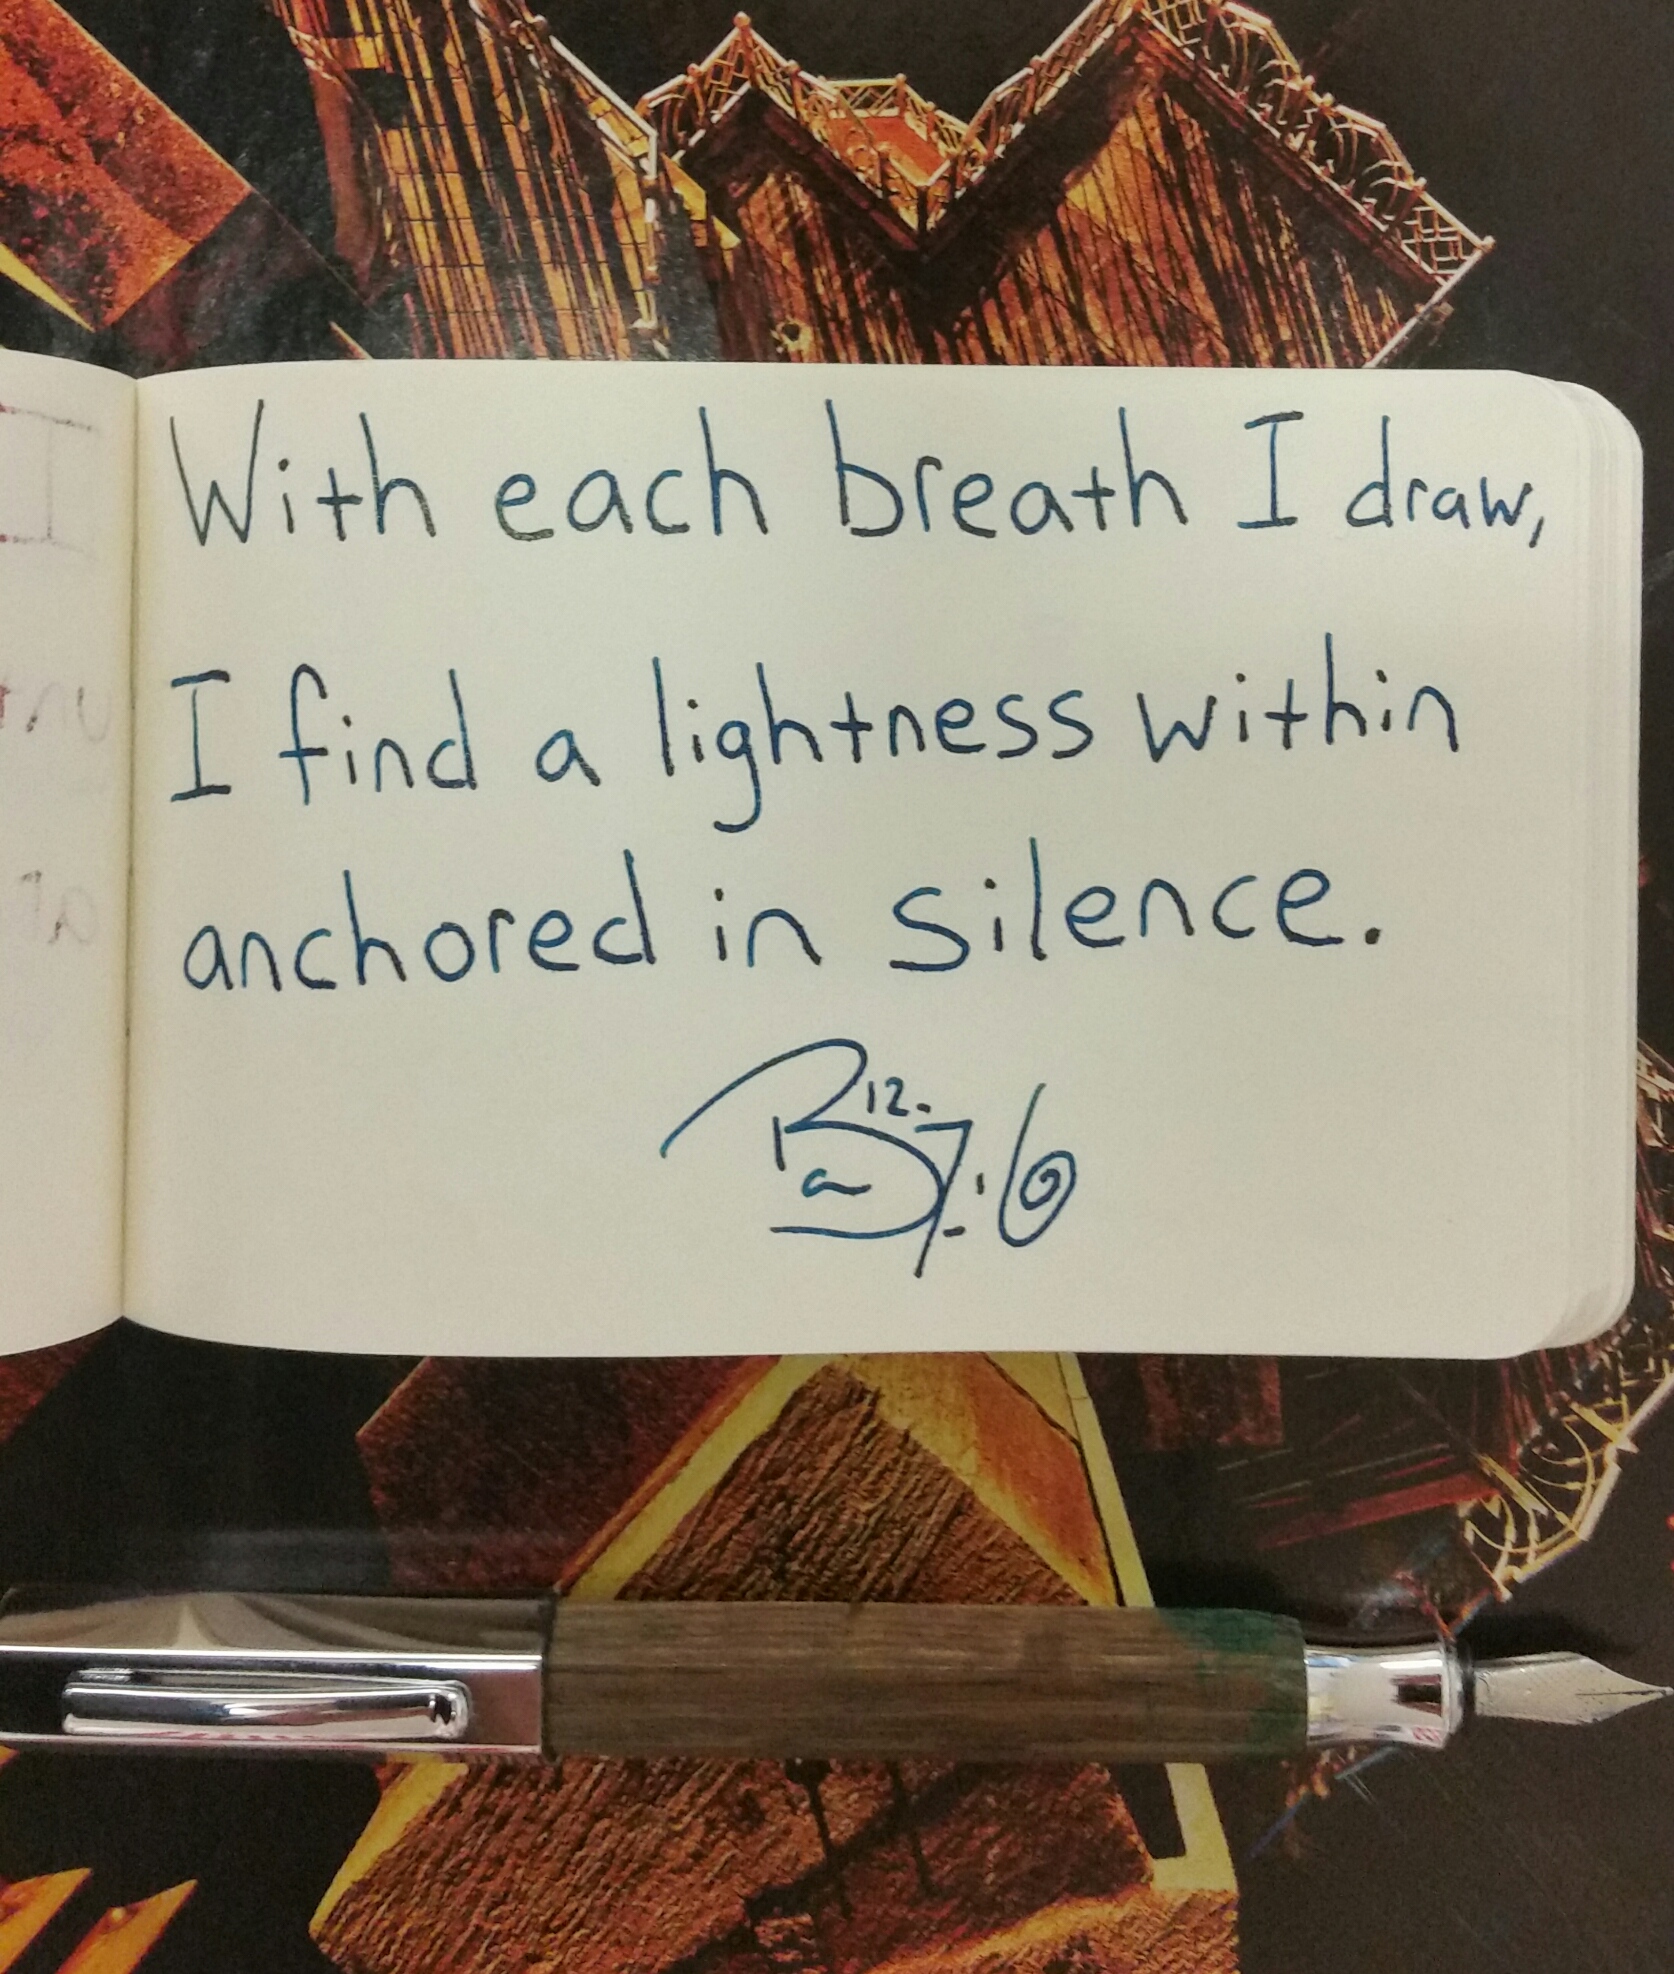 With each breath I draw,
I find a lightness within
anchored in silence.
12.